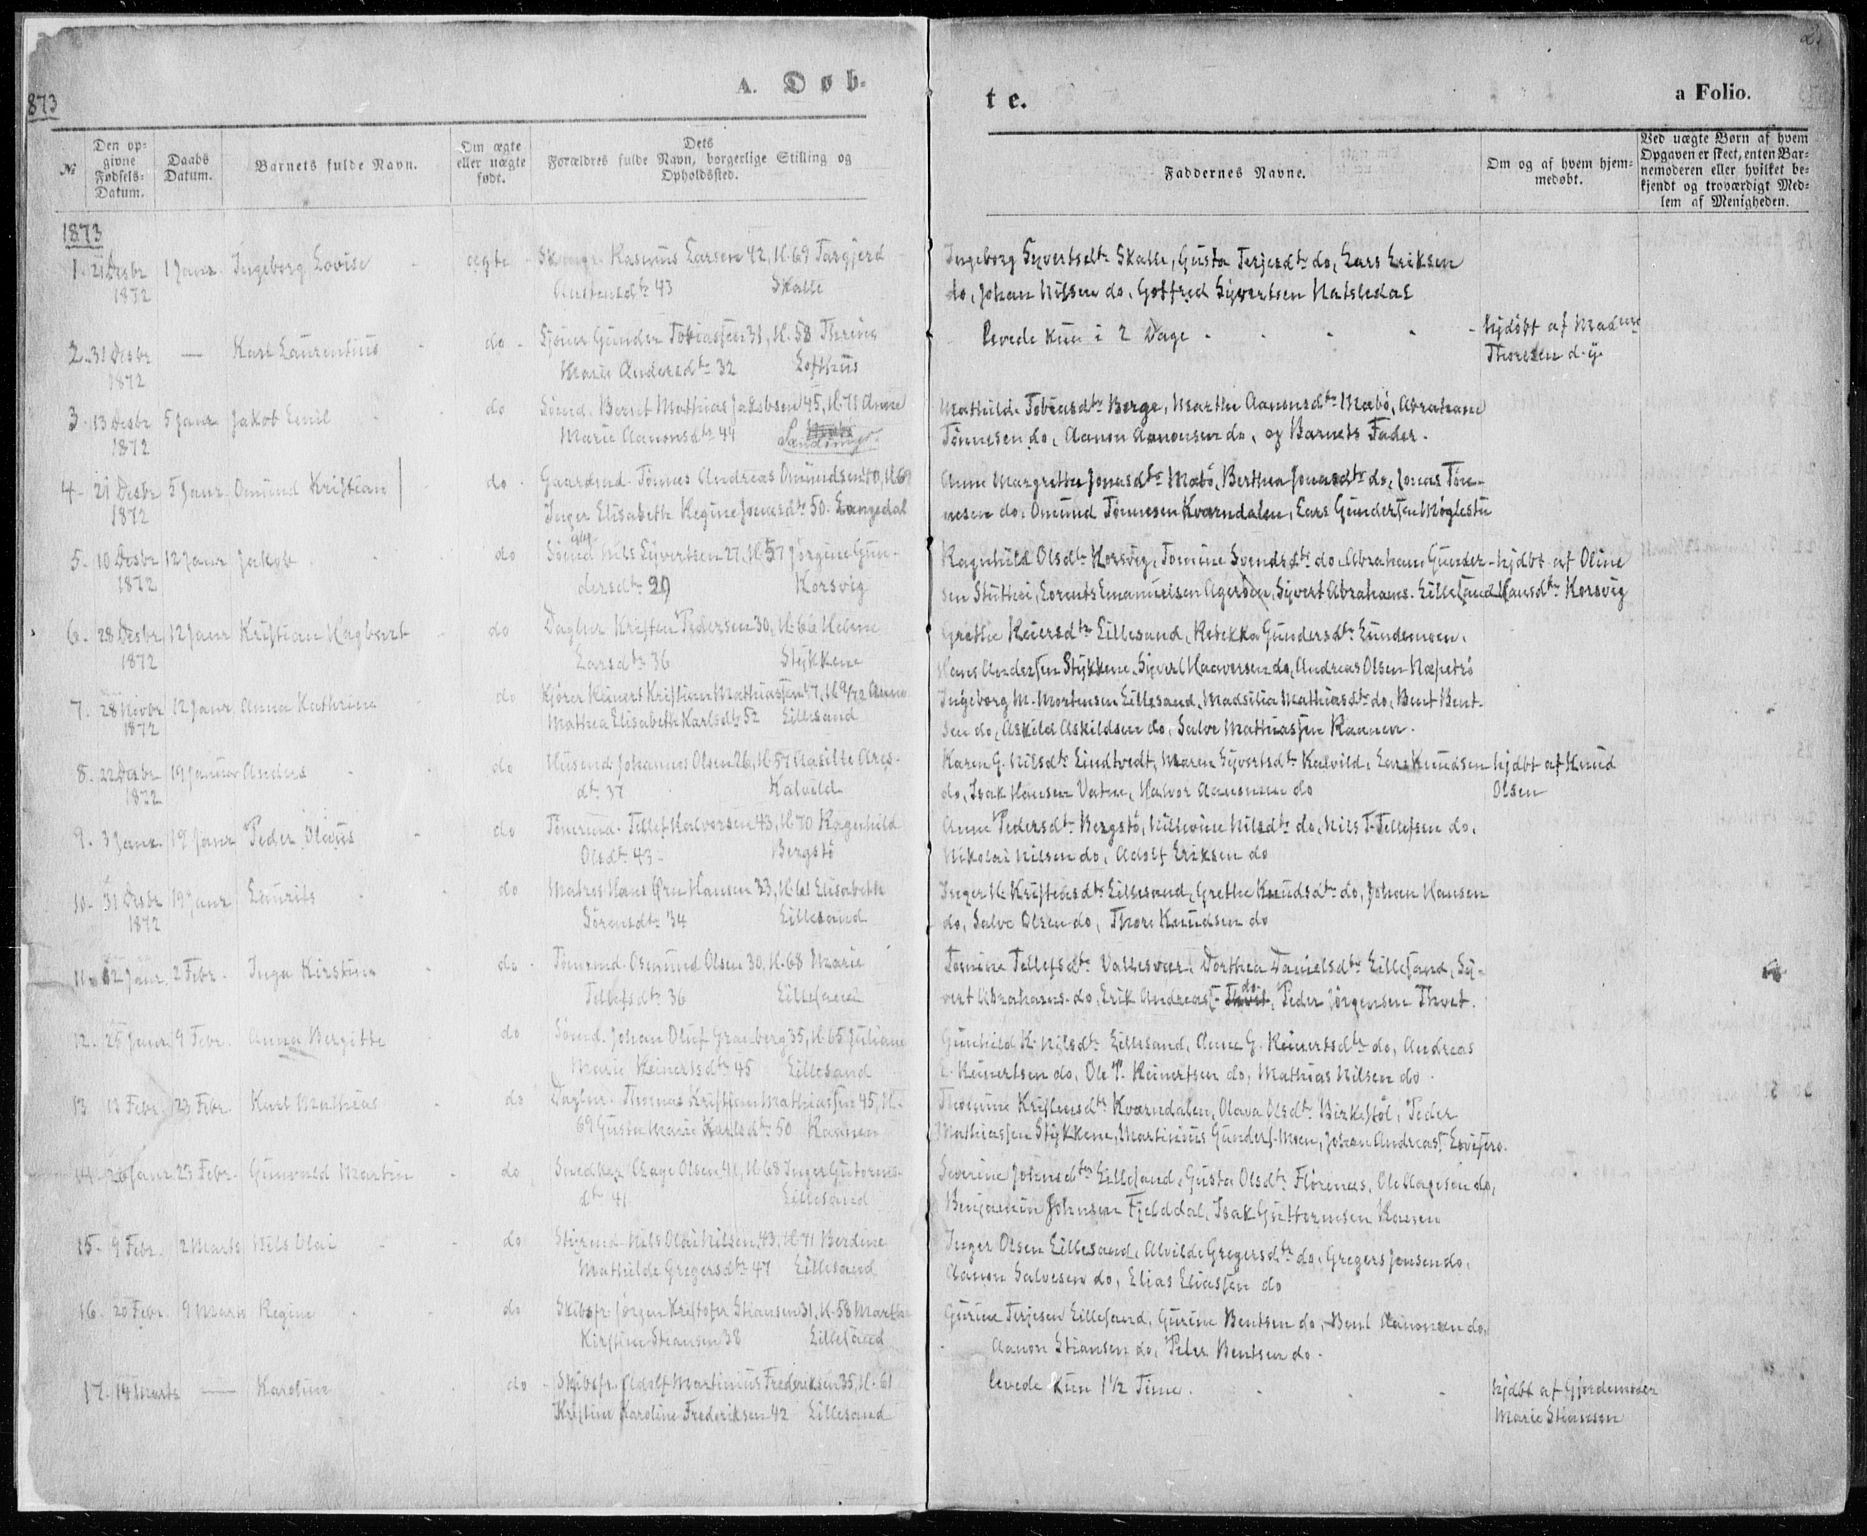 873
A. Døb-
te.
a Folio.
№
Den op-
givne
Fødsels-
Datum.
Daabs
Datum.
Barnets fulde Navn.
Om ægte
eller uægte
født.
Dets
Forældres fulde Navn, borgerlige Stilling og
Opholdssted.
Faddernes Navne.
Om og af hvem hjem-
medøbt.
Ved uægte Børn af hvem
Opgaven er skeet, enten Bar-
nemoderen eller hvilket be-
kjendt og troværdigt Med-
lem af Menigheden.
1873
1. 21 Desbr 1 Janr Ingeborg Lovise - ægte - Rasmus Larsen 42, M. 69 Targjerd
1872 Austensdtr 43 Skalle
Ingeborg Syvertsdtr Skalle, Gusta Terjesdtr do, Lars Eriksen
do, Johan Nilsen do, Gotfred Syvertsen
2. 31 Desbr — Karl Laurentius do - Gunder Tobiassen 31, M. 58 Thrine
1872 Marie Andersdtr 32 Lofthus
levede kun i 2 Dage - hjdøbt af Madame
Thoresen d.y.
3. 13 Desbr 5 Janr Jakob Emil do Sømd. Bernt Mathias Jakobsen 45, M. 71 Anne
1872 Marie Aanonsdtr 44
Mathilde Tobiasdtr Berge, Marthe Aanonsdtr Mæbø, Abraham
Tønnesen do, Aanon Aanonsen do, og Barnets Fader.
4. 21 Desbr 5 Janr Omund Kristian do - Gaardmd. Tønnes Andreas Omundsen 40, M. 69
1872 Inger Elisabeth Regine Jonasdtr 50. Langedal
Anne Margrethe Jonasdtr Mæbø, Berthea Jonasdtr do, Jonas Tøn-
nesen do, Omund Tønnesen Kværndalen, Lars Gundersen Møglestu
5. 10 Desbr 12 Janr Jakob do Sømd Nils Syvertsen 27, M. 57 Jørgine Gun-
1872 dersdtr 29 Korsvig
Ragnhild Olsdtr Korsvig, Tomine Svendsdtr do, Abraham Gunder- hjdbt af Oline
sen Stuthei, Lorents Emanuelsen Agerøen, Syvert Abrahams. Lillesand Hansdtr Korsvig
6. 28 Desbr 12 Janr Kristian Hagbart do Daglnr Kristen Pedersen 30, M. 66 Helene
1872 Larsdtr 36 Stykkene
Grethe Reiersdtr Lillesand, Rebekka Gundersdtr Lundemoen,
Hans Andersen Stykkene, Syvert Haaversen do, Andreas Olsen
7. 28 Novbr 12 Janr Anna Kathrine do Kjører Reinert Kristian Mathiassen 47, M. 72 Anne
1872 Mathea Elisabeth Karlsdtr 52 Lillesand
Ingeborg M. Mortensen Lillesand, Madsilia Mathiasdtr do, Bent Bent-
sen do, Askild Askildsen do, Salve Mathiassen Kaanen.
8. 22 Desbr 19 Januar Anders - do Husmd Johannes Olsen 26, M. 57 Aasille Ares-
1872 dtr 37 Kalvild
Karen G. Nilsdtr Lindtvedt, Maren Syvertsdtr Kalvild, Lars Knudsen hjdbt af Knud
do, Isak Hansen Vatne, Halvor Aanonsen do Olsen
9. 3 Janr 19 Janr Peder Olaus - do Tømrmd. Tellef Halvorsen 43, M. 70 Ragnhild
Olsdtr 43 - Bergstø
Anne Pedersdtr Bergstø, Nillevine Nilsdtr do, Nils T. Tellefsen do,
Nikolai Nilsen do, Adolf Eriksen do
10. 31 Desbr 19 Janr Laurits do Matros Hans Ørn Hansen 33, M. 61 Elisabeth
1872 Sørensdtr 34 Lillesand
Inger M. Kristensdtr Lillesand, Grethe Knudsdtr do, Johan Hansen
do, Salve Olsen do, Thore Knudsen do
11. 12 Janr 2 Febr. Inga Kirstine - do - Tømrmd. Osmund Olsen 30, M. 68 Marie
Tellefsdtr 36 Lillesand
Tomine Tellefsdtr Vallesvær, Dorthea Danielsdtr Lillesand, Sy-
vert Abrahams. do, Erik Andreass. do, Peder Jørgensen Thvet.
12. 25 Janr 9 Febr. Anna Bergitte do Sømd. Johan Oluf Granberg 35, M. 65 Juliane
Marie Reinertsdtr 45 Lillesand
Gunhild K. Nilsdtr Lillesand, Anne G. Reinertsdtr do, Andreas
Reinertsen do, Ole T. Reinertsen do, Mathias Nilsen do.
13. 13 Febr. 23 Febr. Karl Mathias do Daglnr. Thomas Kristian Mathiassen 45, M.
69 Gusta Marie Karlsdtr 50 Kaanen
Thomine Kristensdtr Kværndalen, Olava Olsdtr Birkestøl, Peder
Mathiassen Stykkene, Martinius Gunders. Moen, Johan Andreas
14. 26 Janr 23 Febr. Gunvald Martin - do Snedker Aage Olsen 41, M. 68 Inger Gutorms-
dtr 41 Lillesand
Severine Johnsdtr Lillesand, Gusta Olsdtr Florenæs, Ole Aagesen do,
Benjamin Johnsen Fjelddal, Isak Guttormsen
15. 9 Febr. 2 Marts Nils Olai - do Styrmd. Nils Olai Nilsen 43, M. 71 Berdine
Mathilde Gregersdtr 47 Lillesand
Inger Olsen Lillesand, Alvilde Gregersdtr do, Gregers Jensen do,
Aanon Salvesen do, Elias Eliassen do
16. 20 Febr. 9 Marts Regine do Skibsfr. Jørgen Kristofer Stiansen 31, M. 58 Marthe
Kirstine Stiansen 38 Lillesand
Gurine Terjesen Lillesand, Gurine Bentsen do, Bent Aanonsen do,
Aanon Stiansen do, Peter Bentsen do.
17. 14 Marts — Karoline do - Skibsfr. Adolf Martinius Frederiksen 35, M. 61
Kristine Karoline Frederiksen 42 Lillesand
levede kun 1½ Time. hjdbt af Gjordemoder
Marie Stiansen